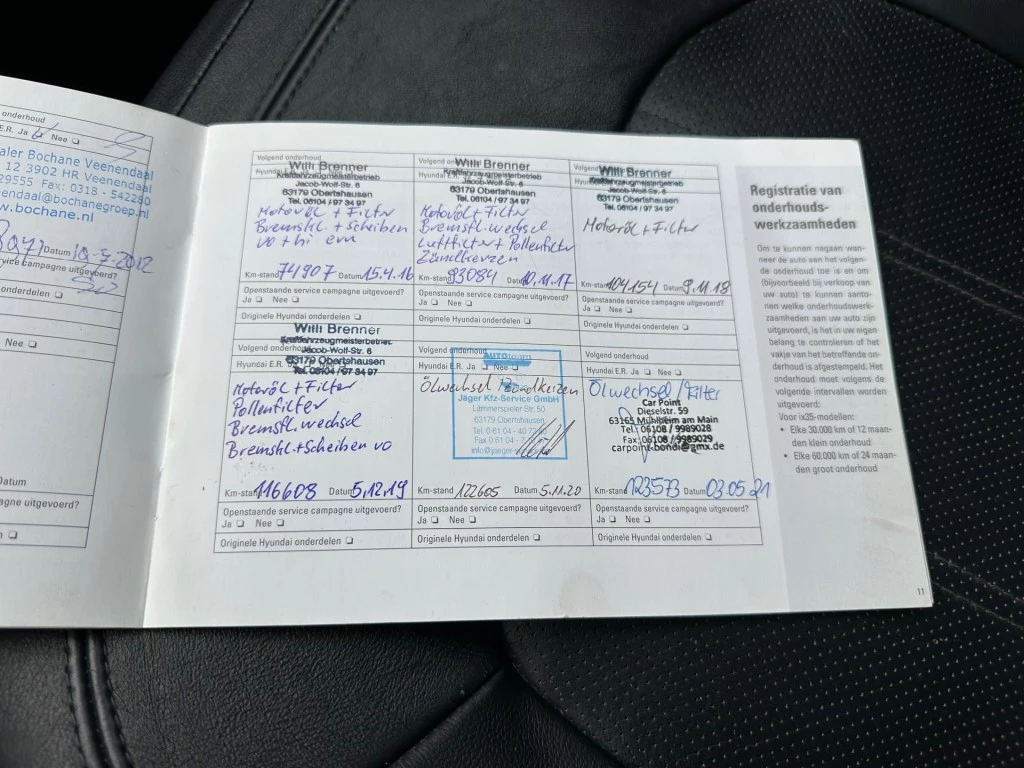 onderhoud
E.R. Ja ❏ Nee ❏
aler Bochane Veenendaal
12 3902 HR Veenendaal
29555 Fax: 0318 - 542280
endaal@bochanegroep.nl
w.bochane.nl
Datum 10-5-2012
service campagne uitgevoerd?
onderdelen ❏
Nee ❏
Datum
agne uitgevoerd?
❏
Volgend onderhoud
Willi Brenner
Kraftfahrzeugmeisterbetrieb
Jacob-Wolf-Str. 6
63179 Obertshausen
Tel. 06104 / 97 34 97
Motoröl + Filter
Bremsfl. + Scheiben
vo + hi ern
Km-stand 74907 Datum 15.4.16
Openstaande service campagne uitgevoerd?
Ja ❏ Nee ❏
Originele Hyundai onderdelen ❏
Volgend onderhoud
Willi Brenner
Kraftfahrzeugmeisterbetrieb
Jacob-Wolf-Str. 6
63179 Obertshausen
Tel. 06104 / 97 34 97
Motoröl + Filter
Bremsfl. wechsel
Luftfilter + Pollenfilter
Zündkerzen
Km-stand 93084 Datum 10.11.17
Openstaande service campagne uitgevoerd?
Ja ❏ Nee ❏
Originele Hyundai onderdelen ❏
Volgend onderhoud
Willi Brenner
Kraftfahrzeugmeisterbetrieb
Jacob-Wolf-Str. 6
63179 Obertshausen
Tel. 06104 / 97 34 97
Motoröl + Filter
Km-stand 104154 Datum 9.11.18
Openstaande service campagne uitgevoerd?
Ja ❏ Nee ❏
Originele Hyundai onderdelen ❏
Willi Brenner
Kraftfahrzeugmeisterbetrieb
Jacob-Wolf-Str. 6
Volgend onderhoud
63179 Obertshausen
Hyundai E.R.
Tel. 06104 / 97 34 97
Motoröl + Filter
Pollenfilter
Bremsfl. wechsel
Bremskl. + Scheiben vo
Km-stand 116608 Datum 5.12.19
Openstaande service campagne uitgevoerd?
Ja ❏ Nee ❏
Originele Hyundai onderdelen ❏
Volgend onderhoud
AUTOteam
Hyundai E.R. Ja ❏ Nee ❏
Ölwechsel Zündkerzen
Jäger Kfz-Service GmbH
Lämmerspieler Str. 50
63179 Obertshausen
Tel. 0 61 04 - 40
Fax 0 61 04 -
info@jaeger
Km-stand 122605 Datum 5.11.20
Openstaande service campagne uitgevoerd?
Ja ❏ Nee ❏
Originele Hyundai onderdelen ❏
Volgend onderhoud
Hyundai E.R. Ja ❏ Nee ❏
Ölwechsel / Filter
Car Point
Dieselstr. 59
63165 Mühlheim am Main
Tel.: 06108 / 9989028
Fax: 06108 / 9989029
carpoint-bondi@gmx.de
Km-stand 123573 Datum 03.05.21
Openstaande service campagne uitgevoerd?
Ja ❏ Nee ❏
Originele Hyundai onderdelen ❏
Registratie van
onderhouds-
werkzaamheden
Om te kunnen nagaan wan-
neer de auto aan het volgen-
de onderhoud toe is en om
(bijvoorbeeld bij verkoop van
uw auto) te kunnen aanto-
nen welke onderhoudswerk-
zaamheden aan uw auto zijn
uitgevoerd, is het in uw eigen
belang te controleren of het
vakje van het betreffende on-
derhoud is afgestempeld. Het
onderhoud moet volgens de
volgende intervallen worden
uitgevoerd:
Voor ix35-modellen:
• Elke 30.000 km of 12 maan-
den klein onderhoud
• Elke 60.000 km of 24 maan-
den groot onderhoud
11